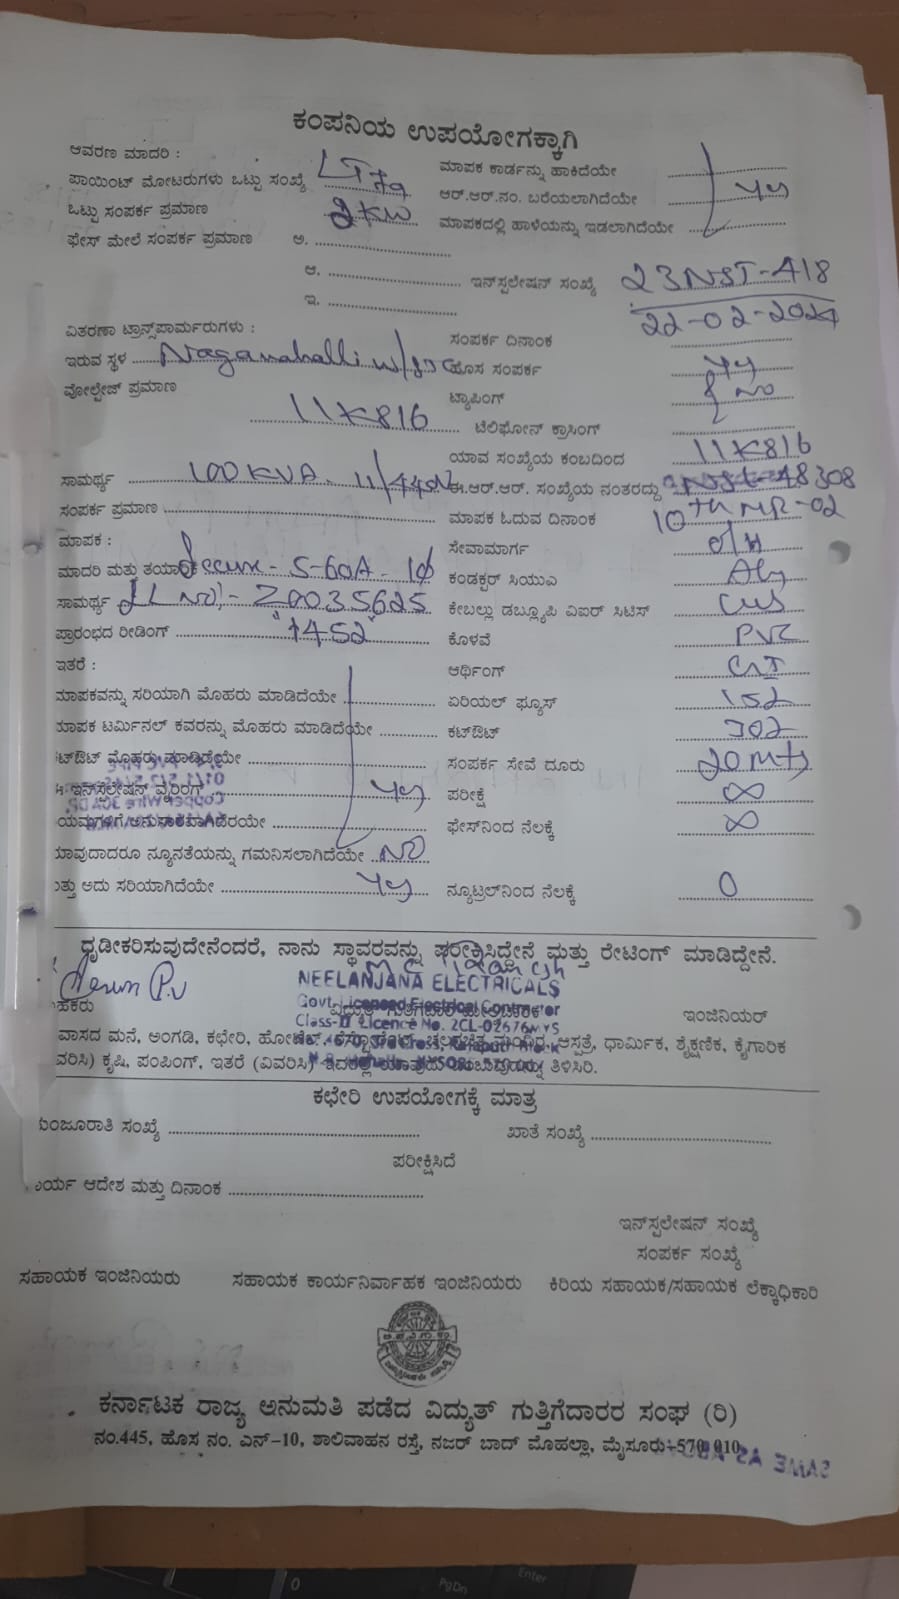 ಕಂಪನಿಯ ಉಪಯೋಗಕ್ಕಾಗಿ
ಆವರಣ ಮಾದರಿ :
ಮಾಪಕ ಕಾರ್ಡನ್ನು ಹಾಕಿದೆಯೇ
ಪಾಯಿಂಟ್ ಮೋಟರುಗಳು ಒಟ್ಟು ಸಂಖ್ಯೆ LT7a
ಆರ್.ಆರ್.ನಂ. ಬರೆಯಲಾಗಿದೆಯೇ Yes
ಒಟ್ಟು ಸಂಪರ್ಕ ಪ್ರಮಾಣ 2KW
ಮಾಪಕದಲ್ಲಿ ಹಾಳೆಯನ್ನು ಇಡಲಾಗಿದೆಯೇ
ಫೇಸ್ ಮೇಲೆ ಸಂಪರ್ಕ ಪ್ರಮಾಣ ಅ.
ಆ.
ಇನ್‌ಸ್ಪಲೇಷನ್ ಸಂಖ್ಯೆ 23NST-418
ಇ.
22-02-2024
ವಿತರಣಾ ಟ್ರಾನ್ಸ್‌ಪಾರ್ಮರುಗಳು :
ಸಂಪರ್ಕ ದಿನಾಂಕ
ಇರುವ ಸ್ಥಳ Naganahalli
ಹೊಸ ಸಂಪರ್ಕ Yes
ವೋಲ್ಟೇಜ್ ಪ್ರಮಾಣ
ಟ್ಯಾಪಿಂಗ್
11K816
ಟೆಲಿಫೋನ್ ಕ್ರಾಸಿಂಗ್
ಯಾವ ಸಂಖ್ಯೆಯ ಕಂಬದಿಂದ 11K816
ಸಾಮರ್ಥ್ಯ 100KVA. 11/440V
ಈ.ಆರ್.ಆರ್. ಸಂಖ್ಯೆಯ ನಂತರದ್ದು NST-48308
ಸಂಪರ್ಕ ಪ್ರಮಾಣ
ಮಾಪಕ ಓದುವ ದಿನಾಂಕ 10th MR-02
ಮಾಪಕ :
ಸೇವಾಮಾರ್ಗ O/H
ಮಾದರಿ ಮತ್ತು ತಯಾರಿಕೆ Secure - 5-60A - 1ϕ
ಕಂಡಕ್ಟರ್ ಸಿಯುಎ Aly
ಸಾಮರ್ಥ್ಯ SL NO:- 20035625
ಕೇಬಲ್ಲು ಡಬ್ಲ್ಯೂಪಿ ವಿಐರ್ ಸಿಟಿಸ್
ಪ್ರಾರಂಭದ ರೀಡಿಂಗ್ 1452
ಕೊಳವೆ PVC
ಇತರೆ :
ಅರ್ಥಿಂಗ್
ಮಾಪಕವನ್ನು ಸರಿಯಾಗಿ ಮೊಹರು ಮಾಡಿದೆಯೇ
ಏರಿಯಲ್ ಫ್ಯೂಸ್ 152
ಮಾಪಕ ಟರ್ಮಿನಲ್ ಕವರನ್ನು ಮೊಹರು ಮಾಡಿದೆಯೇ
ಕಟ್‌ಔಟ್ 302
ಕಟ್‌ಔಟ್ ಮೊಹರು ಮಾಡಿದೆಯೇ
ಸಂಪರ್ಕ ಸೇವೆ ದೂರು 20 Mts
ಇನ್‌ಸ್ಪಲೇಷನ್ ವೈರಿಂಗ್ Yes
ಪರೀಕ್ಷೆ ∞
ಅನುಸಾರವಾಗಿದೆಯೇ
ಫೇಸ್‌ನಿಂದ ನೆಲಕ್ಕೆ ∞
ಯಾವುದಾದರೂ ನ್ಯೂನತೆಯನ್ನು ಗಮನಿಸಲಾಗಿದೆಯೇ NO
ಮತ್ತು ಅದು ಸರಿಯಾಗಿದೆಯೇ Yes
ನ್ಯೂಟ್ರಲ್‌ನಿಂದ ನೆಲಕ್ಕೆ 0
ಧೃಡೀಕರಿಸುವುದೇನೆಂದರೆ, ನಾನು ಸ್ಥಾವರವನ್ನು ಪರೀಕ್ಷಿಸಿದ್ದೇನೆ ಮತ್ತು ರೇಟಿಂಗ್ ಮಾಡಿದ್ದೇನೆ.
NEELANJANA ELECTRICALS
Govt. Licenced Electrical Contractor
ಇಂಜಿನಿಯರ್
Class-II Licence No. 2CL-02676MYS
ವಾಸದ ಮನೆ, ಅಂಗಡಿ, ಕಛೇರಿ, ಆಸ್ಪತ್ರೆ, ಧಾರ್ಮಿಕ, ಶೈಕ್ಷಣಿಕ, ಕೈಗಾರಿಕ
ಕೃಷಿ, ಪಂಪಿಂಗ್, ಇತರೆ (ವಿವರಿಸಿ) ತಿಳಿಸಿರಿ.
ಕಛೇರಿ ಉಪಯೋಗಕ್ಕೆ ಮಾತ್ರ
ಮಂಜೂರಾತಿ ಸಂಖ್ಯೆ
ಖಾತೆ ಸಂಖ್ಯೆ
ಪರೀಕ್ಷಿಸಿದೆ
ಕಾರ್ಯ ಆದೇಶ ಮತ್ತು ದಿನಾಂಕ
ಇನ್‌ಸ್ಪಲೇಷನ್ ಸಂಖ್ಯೆ
ಸಂಪರ್ಕ ಸಂಖ್ಯೆ
ಸಹಾಯಕ ಇಂಜಿನಿಯರು
ಸಹಾಯಕ ಕಾರ್ಯನಿರ್ವಾಹಕ ಇಂಜಿನಿಯರು
ಕಿರಿಯ ಸಹಾಯಕ/ಸಹಾಯಕ ಲೆಕ್ಕಾಧಿಕಾರಿ
ಕರ್ನಾಟಕ ರಾಜ್ಯ ಅನುಮತಿ ಪಡೆದ ವಿದ್ಯುತ್ ಗುತ್ತಿಗೆದಾರರ ಸಂಘ (ರಿ)
ನಂ.445, ಹೊಸ ನಂ. ಎನ್-10, ಶಾಲಿವಾಹನ ರಸ್ತೆ, ನಜರ್ ಬಾದ್ ಮೊಹಲ್ಲಾ, ಮೈಸೂರು-570 010
Enter
0
PgDn